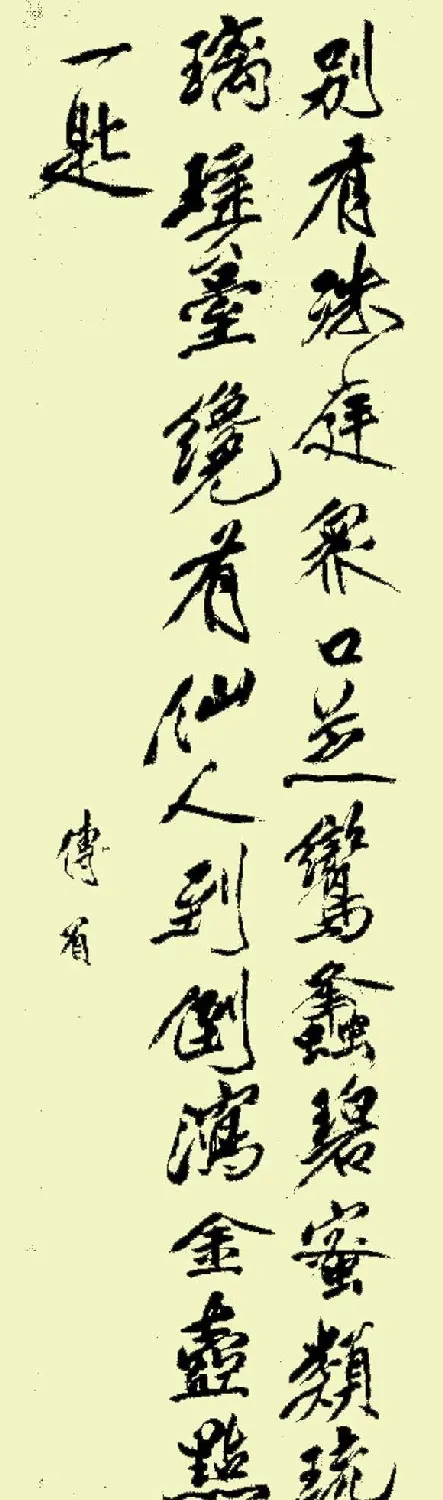 別有珠庭衆口芝鸞蠭碧蜜類琉
璃瑤臺纔有仙人到倒瀉金壺點
一匙
傅眉